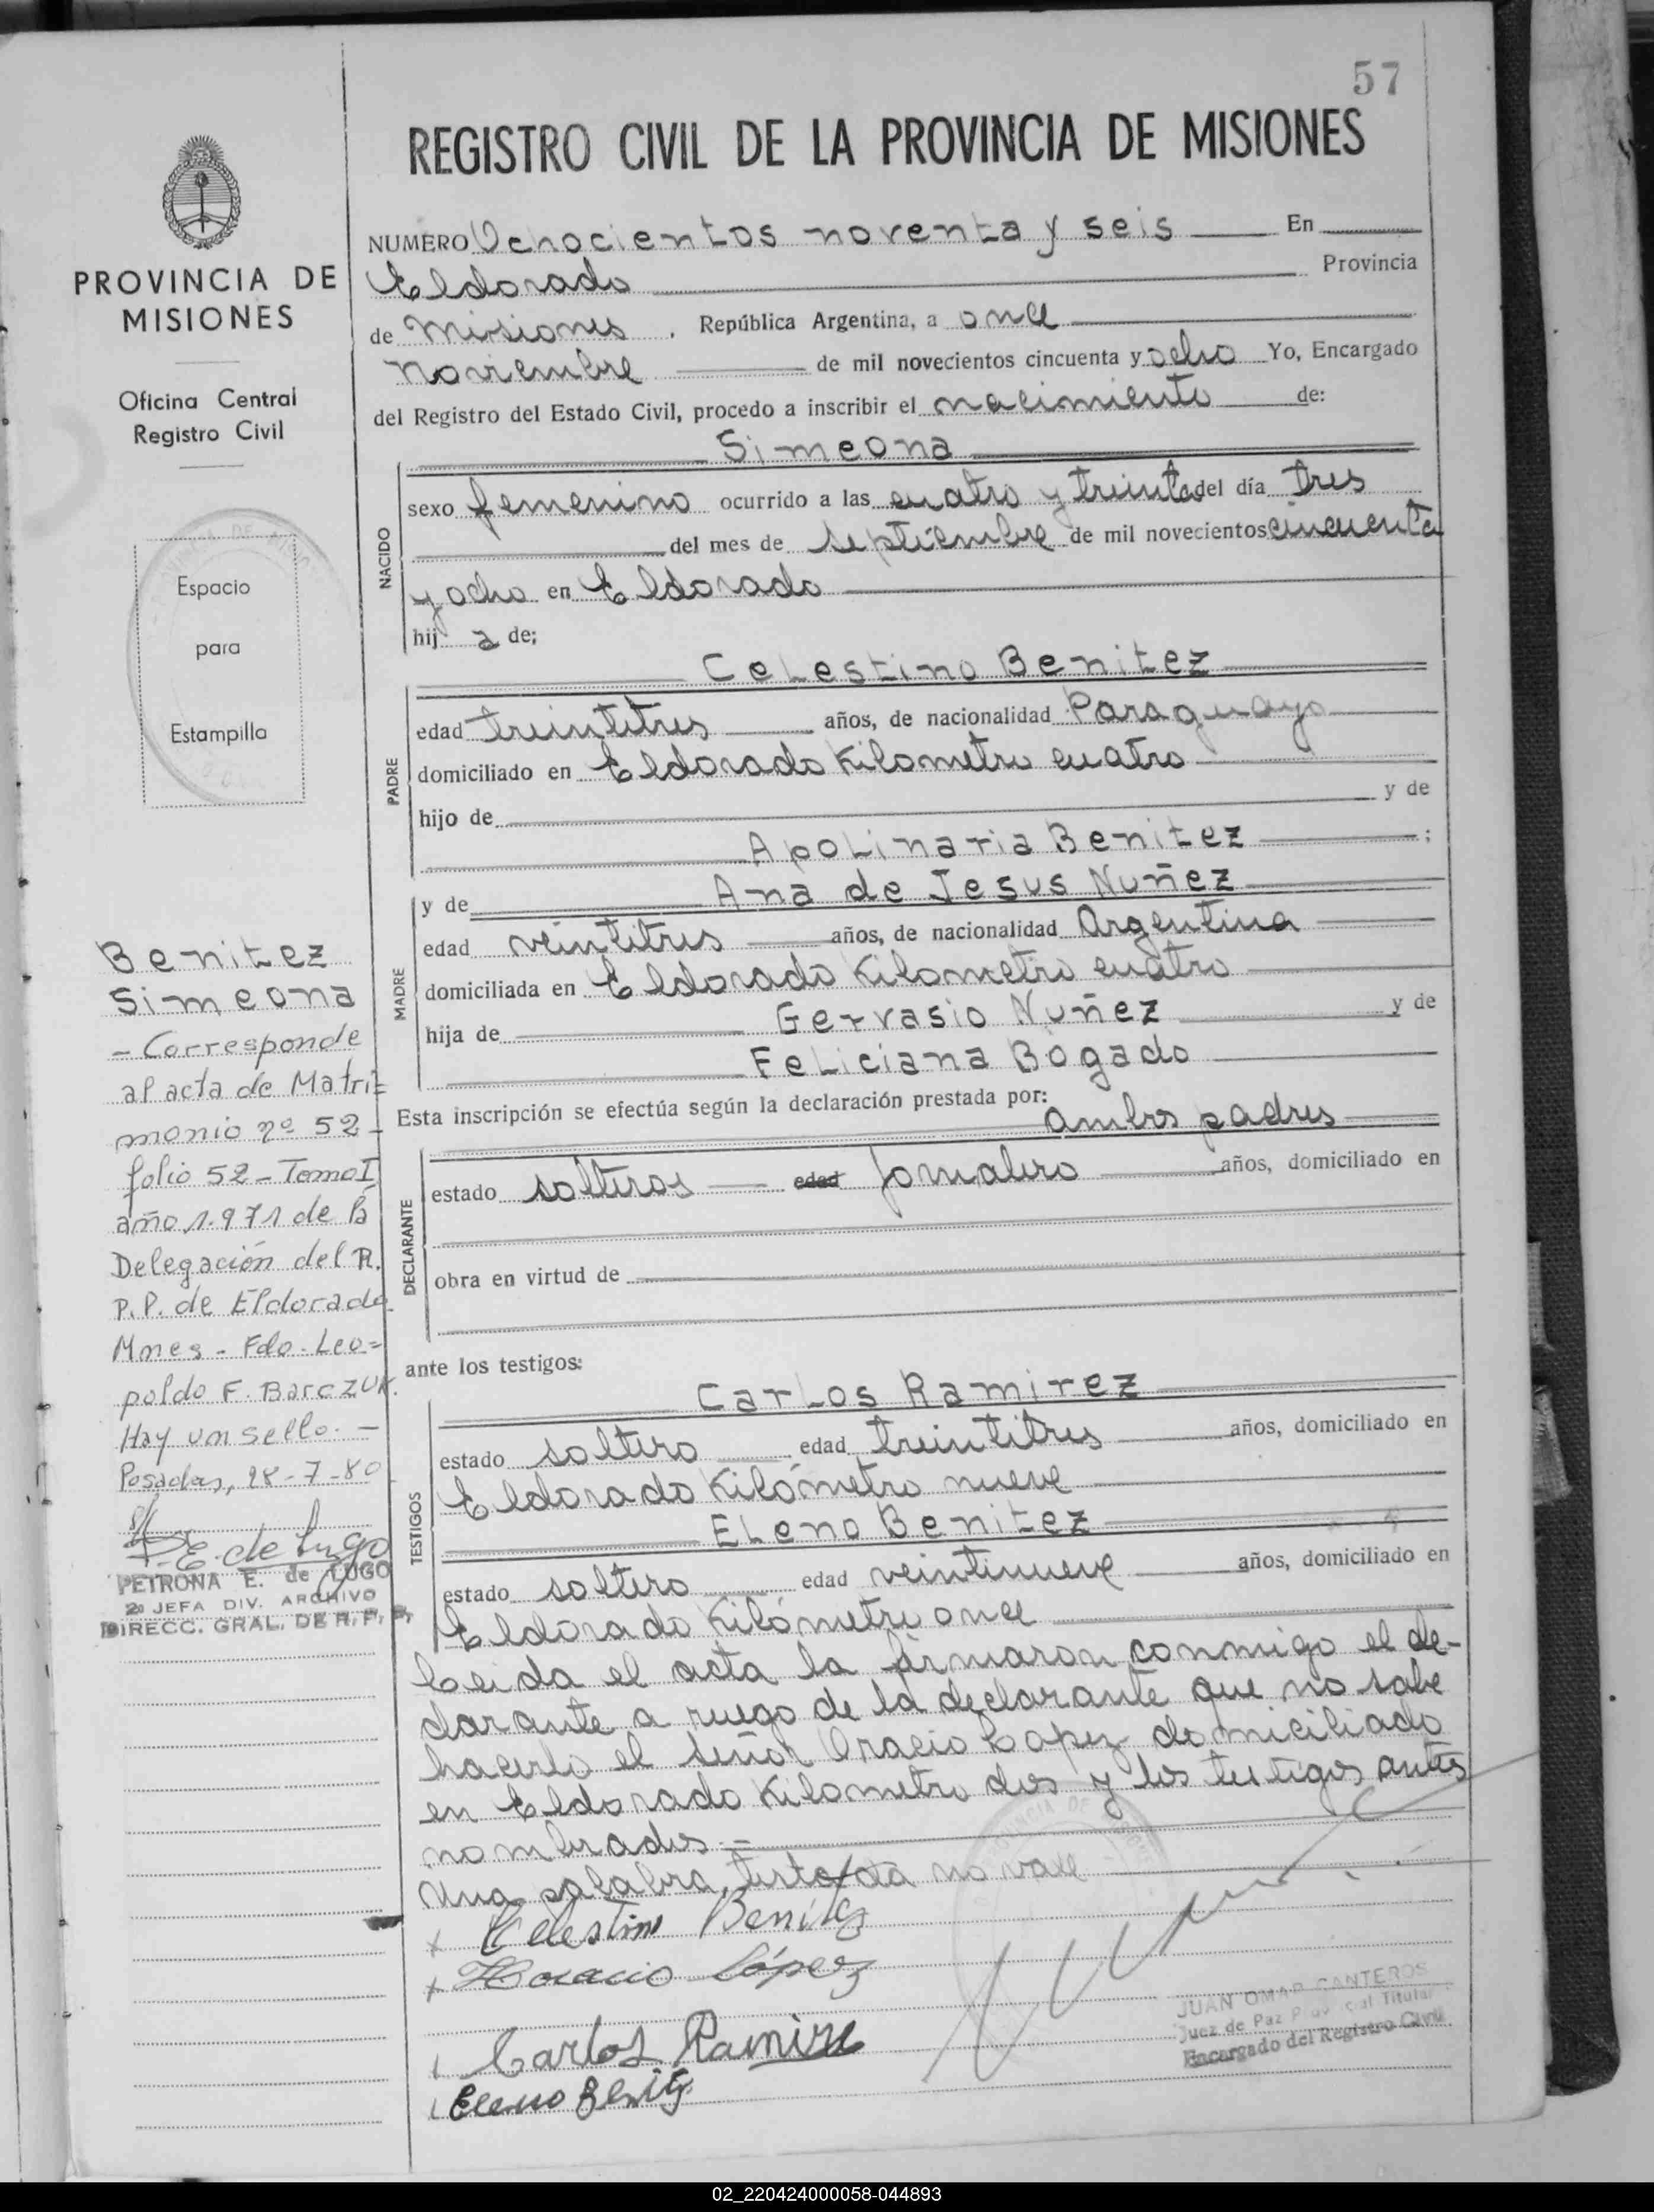 57
REGISTRO CIVIL DE LA PROVINCIA DE MISIONES
PROVINCIA DE
MISIONES
Oficina Central
Registro Civil
Espacio
para
Estampilla
Benitez
Simeona
- Corresponde
al acta de Matri=
monio nº 52 -
folio 52 - Tomo I
año 1.971 de la
Delegación del R.
P.P. de Eldorado
Mnes - Fdo. Leo=
poldo F. Barczuk.
Hay un sello. -
Posadas, 28-7-80
P.E. de Lugo
PETRONA E. de LUGO
2º JEFA DIV. ARCHIVO
DIRECC. GRAL. DE R. P. P.
NUMERO Ochocientos noventa y seis En
Eldorado Provincia
de Misiones, República Argentina, a once
Noviembre de mil novecientos cincuenta y ocho Yo, Encargado
del Registro del Estado Civil, procedo a inscribir el nacimiento de:
NACIDO
Simeona
sexo femenino ocurrido a las cuatro y treinta del día tres
del mes de septiembre de mil novecientos cincuenta
y ocho en Eldorado
hij a de;
PADRE
Celestino Benitez
edad treintitres años, de nacionalidad Paraguayo
domiciliado en Eldorado Kilometro cuatro
hijo de y de
Apolinaria Benitez ;
MADRE
y de Ana de Jesus Nuñez
edad veintitres años, de nacionalidad Argentina
domiciliada en Eldorado Kilometro cuatro
hija de Gervasio Nuñez y de
Feliciana Bogado
Esta inscripción se efectúa según la declaración prestada por:
ambos padres
DECLARANTE
estado solteros edad Jornalero años, domiciliado en
obra en virtud de
ante los testigos:
TESTIGOS
Carlos Ramirez
estado soltero edad treintitres años, domiciliado en
Eldorado Kilómetro nueve
Eleno Benitez
estado soltero edad veintinueve años, domiciliado en
Eldorado Kilómetro once
Leida el acta la firmaron conmigo el de-
clarante a ruego de la declarante que no sabe
hacerlo el señor Oracio Lopez domiciliado
en Eldorado Kilometro dos y los testigos antes
nombrados.-
Una palabra testada no vale
x Celestino Benitez
x Horacio López
Carlos Ramirez
Eleno Benitez
JUAN OMAR CANTEROS
Juez de Paz Provincial Titular
Encargado del Registro Civil
02_220424000058-044893